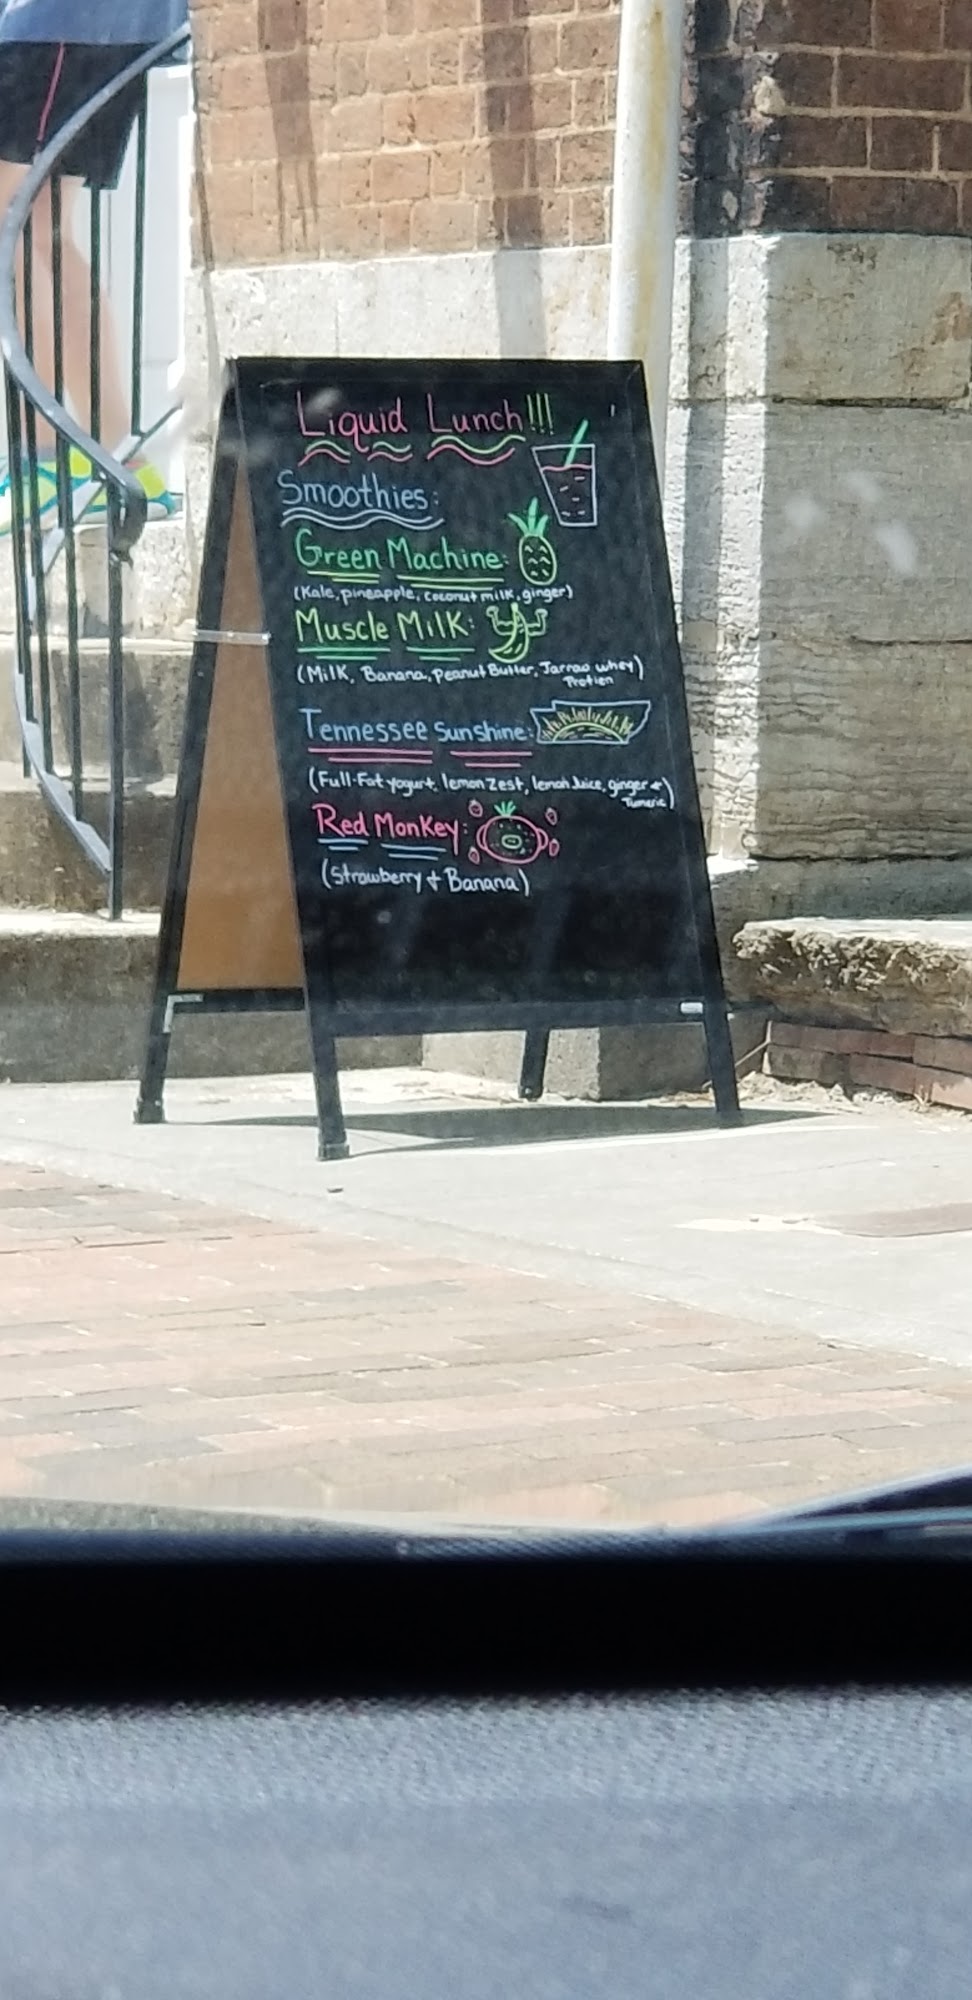 Liquid Lunch!!!
Smoothies:
Green Machine:
(Kale, pineapple, coconut milk, ginger)
Muscle Milk:
(Milk, Banana, Peanut Butter, Jarrao whey
Protien)
Tennessee Sunshine:
(Full-Fat yogurt, lemon zest, lemon Juice, ginger +
Tumeric)
Red Monkey:
(Strawberry + Banana)